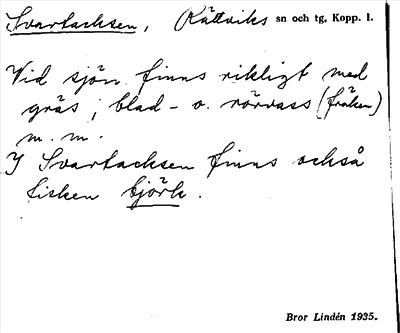 Svartacksen, Rättviks sn och tg, Kopp. l.
Vid sjön finns rikligt med
gräs i blad- o. rörvass (fräken)
m. m.
I Svartacksen finns också
fisken björk.
Bror Lindén 1935.